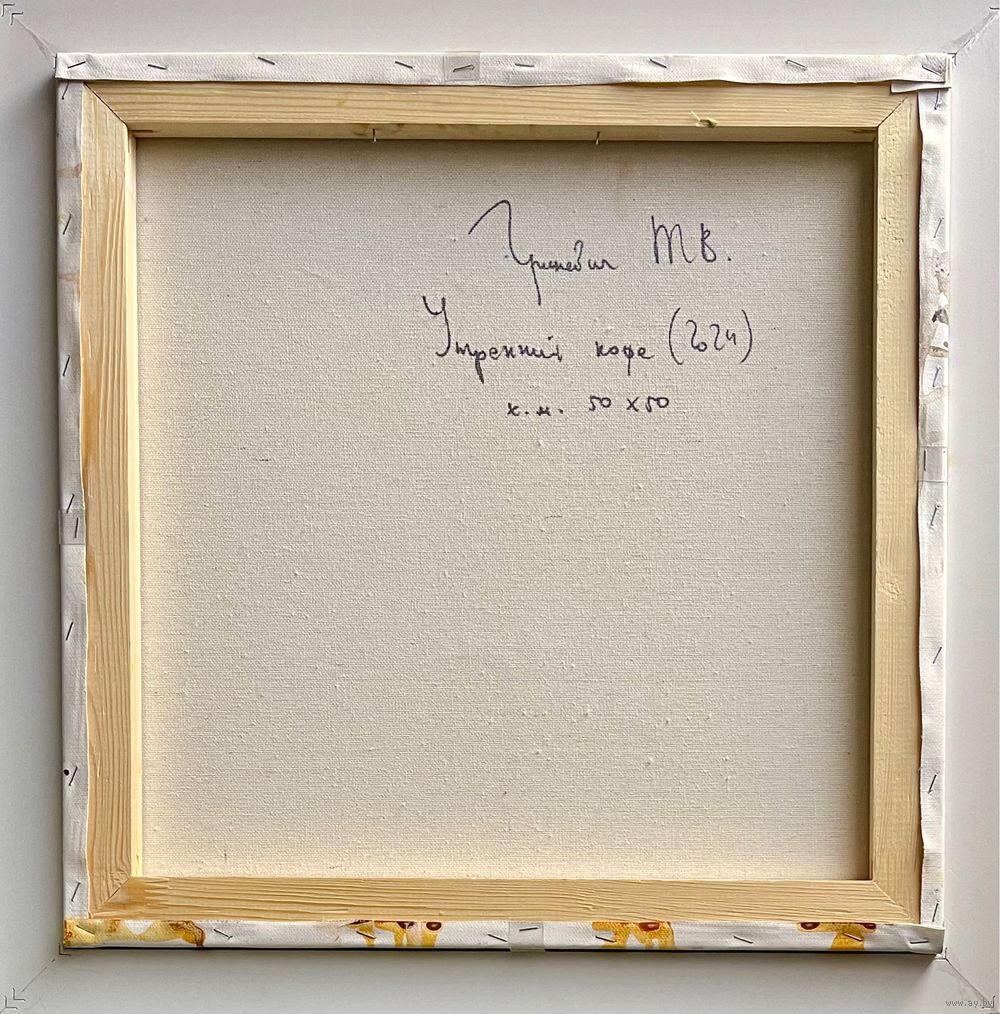 Гриневич Т В.
Утренний кофе (2024)
х.м. 50 х 50
www.ay.by